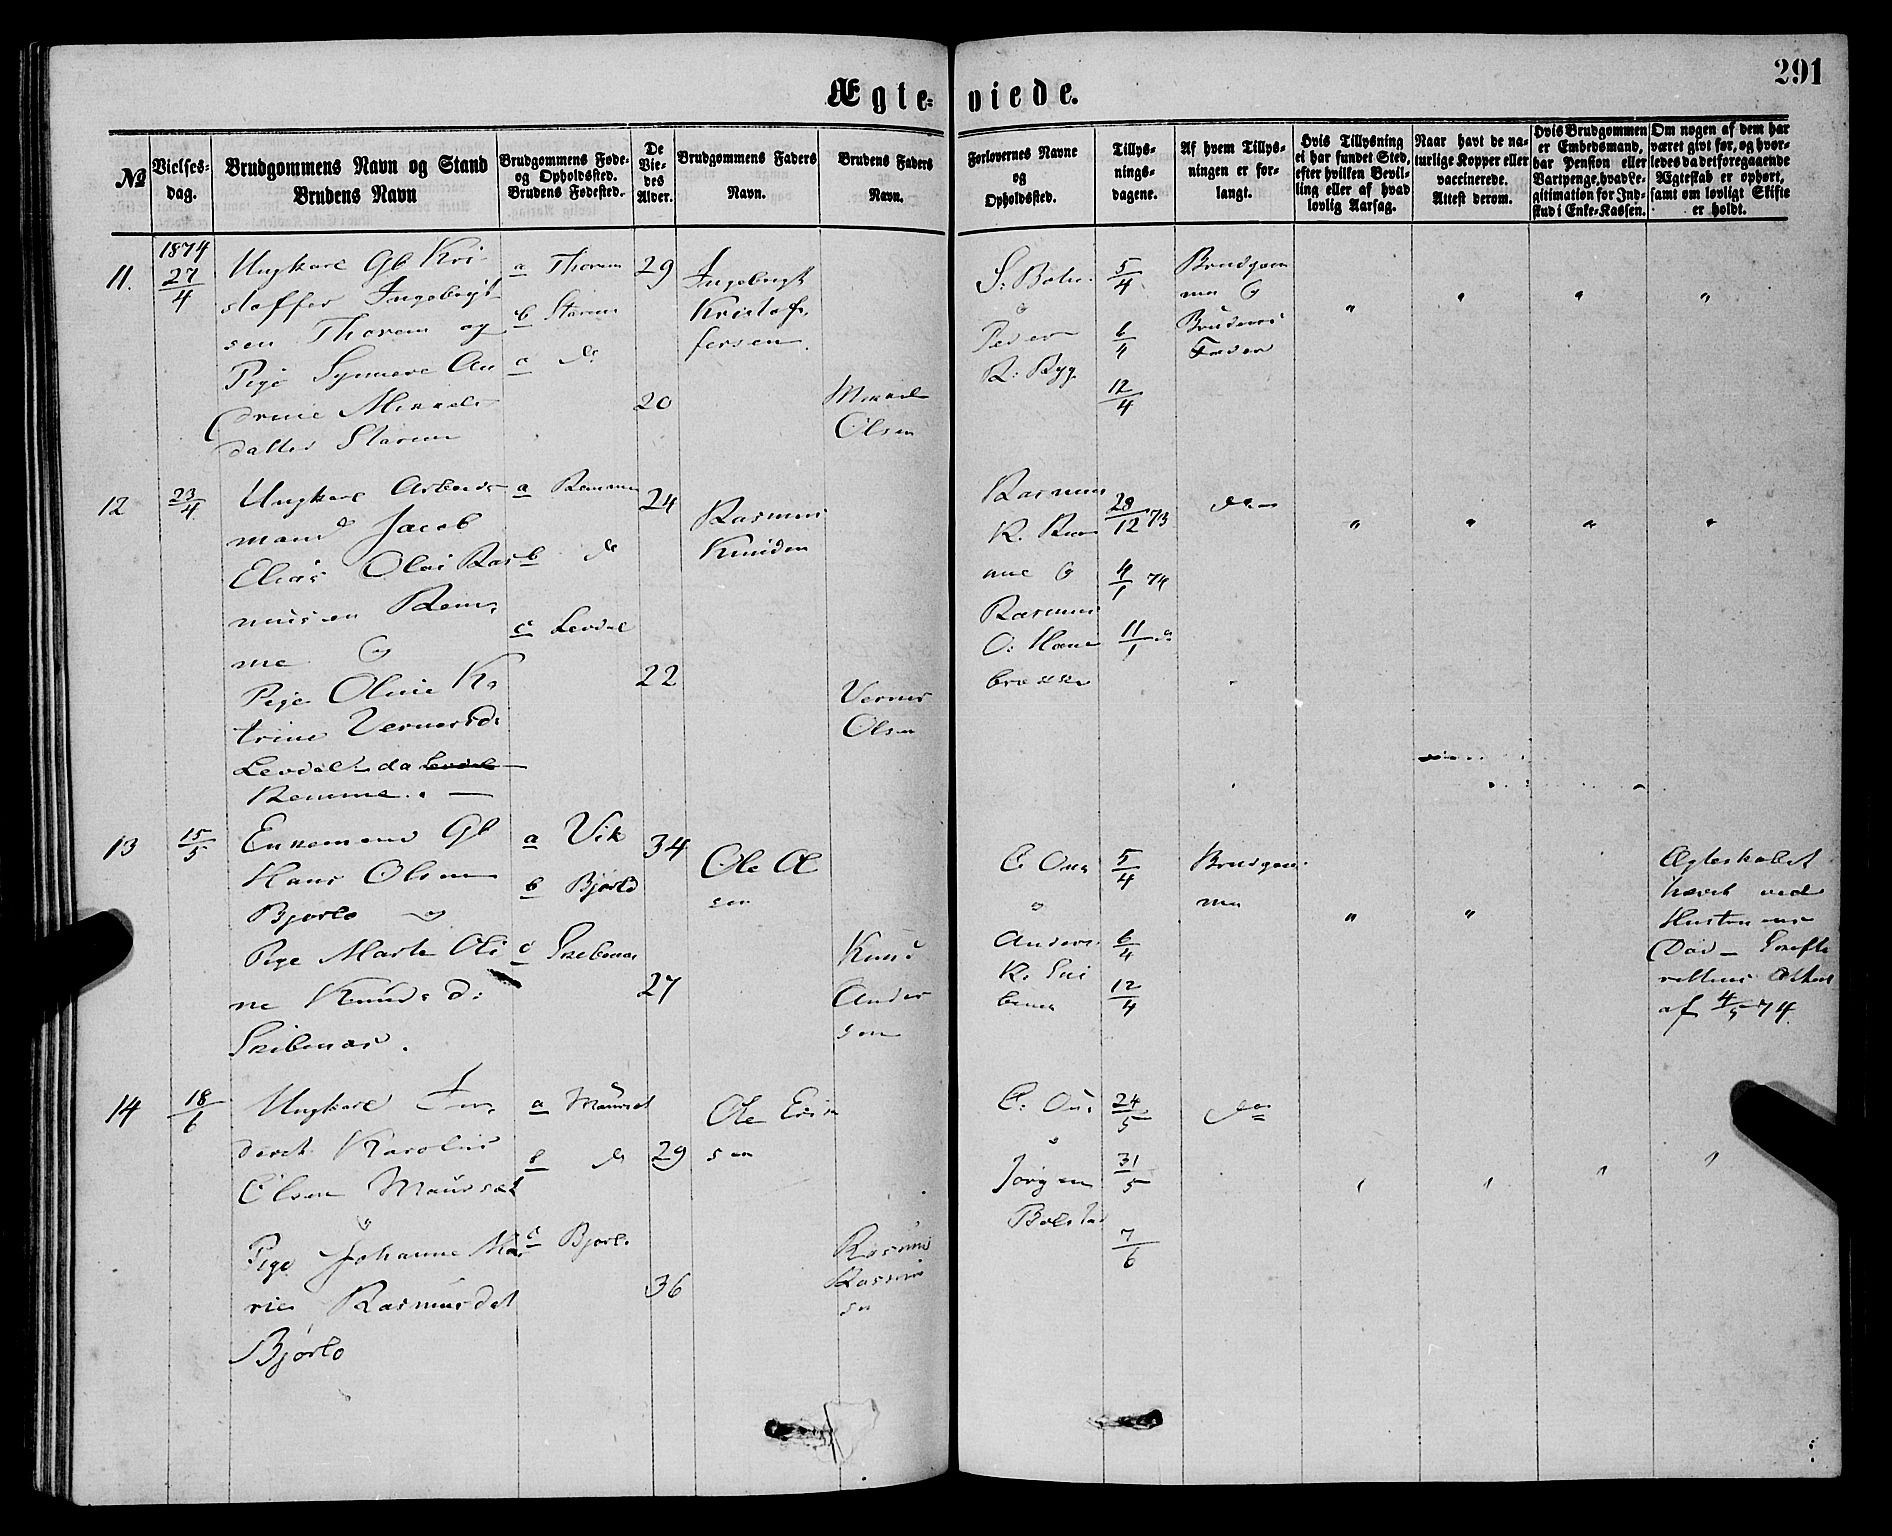 Ægteviede.
291
№
Vielses-
dag.
Brudgommens Navn og Stand
Brudens Navn
Brudgommens Føde-
og Opholdssted.
Brudens Fødested.
De
Vie-
des
Alder.
Brudgommens Faders
Navn.
Brudens Faders
Navn.
Forlovernes Navne
og
Opholdssted.
Tillys-
nings-
dagene.
Af hvem Tillys-
ningen er for-
langt.
Hvis Tillysning
ei har fundet Sted,
efter hvilken Bevil-
ling eller af hvad
lovlig Aarsag.
Naar havt de na-
turlige Kopper eller
vaccinerede.
Attest derom.
Hvis Brudgommen
er Embedsmand,
har Pension eller
Vartpenge, hvad Le-
gitimation for Ind-
skud i Enke-Kassen.
Om nogen af dem har
været givt før, og hvor-
ledes da det foregaaende
Ægteskab er ophørt,
samt om lovligt Skifte
er holdt.
11.
1874
27/4
Ungkarl Gb Kri-
stoffer Ingebrigt-
sen Thorem og
Pige Synneve An
drine Mikkels-
datter Starem
a Thorem
b Starem
c do
29
20
Ingebrigt
Kristof-
fersen.
Mikkel
Olsen
Peder
R: Ryg
5/4
6/4
12/4
Brudgom
men &
Brudens
Fader
" " " "
12
23/4
Ungkarl Arbeids-
mand Jacob
Elias Olai Ras
mussen Rem-
me og
Pige Oline Ka
trine Vernersd:
Levdal da Levdal
Remme. —
a Remme
b do
c Levdal
24
22
Rasmus
Knudsen
Verner
Olsen
Rasmus
K. Rem
me &
Rasmus
O:
28/12 73
4/1 74
11/1 "
do
" " " "
13
15/5
Enkemand Gb
Hans Olsen
Bjørlo og
Pige Marte Oli
ne Knudsd:
Skibenæs.
a Vik
b Bjørlo
c Skibenæs
34
27
Ole Ol
sen
Knud
Ander
sen
Anders
K. Ski
benæs
5/4
6/4
12/4
Brudgom
men
" "
Ægteskabet
hævet ved
Hustruens
Død - Skifte
rettens Attest
af 4/5 74.
14
18/6
Ungkarl
Karolius
Olsen Maurset
Pige Johanne Ma
rie Rasmusdat
Bjørlo
a Maurset
b do
c Bjørlo
29
36
Ole
sen
Rasmus
Rasmus
sen
Jørgen
Bolstad
24/5
31/5
7/6
do
" " " "